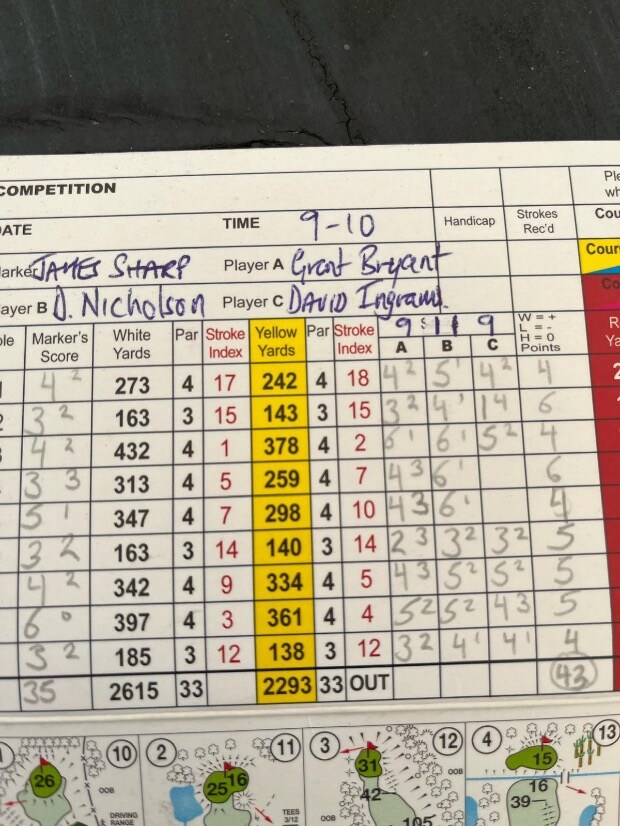 COMPETITION
Ple
wh
DATE TIME 9-10 Handicap Strokes Rec'd Cou
Marker JAMES SHARP Player A Grant Bryant Cour
Player B D. Nicholson Player C DAVID Ingram. Co
ole Marker's Score White Yards Par Stroke Index Yellow Yards Par Stroke Index 9 11 9 A B C W = + L = - H = 0 Points R Ya
4 2 273 4 17 242 4 18 4 2 5 1 4 2 4
2 3 2 163 3 15 143 3 15 3 2 4 1 1 4 6
4 2 432 4 1 378 4 2 6 1 6 1 5 2 4
3 3 313 4 5 259 4 7 4 3 6 1 6
5 1 347 4 7 298 4 10 4 3 6 1 4
3 2 163 3 14 140 3 14 2 3 3 2 3 2 5
4 2 342 4 9 334 4 5 4 3 5 2 5 2 5
6 0 397 4 3 361 4 4 5 2 5 2 4 3 5
3 2 185 3 12 138 3 12 3 2 4 1 4 1 4
35 2615 33 2293 33 OUT 43
10 2 11 3 12 4 13
26 OOB DRIVING RANGE
25 16 TEES 3/12
31 42 105 OOB OOB
15 16 39